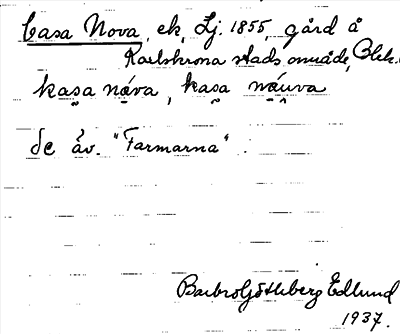 Casa Nova, ek, Lj. 1855, gård å
Karlskrona stads område, Blek.
kasa nava, kasa nauva
se äv. "Farmarna".
Barbro Götheberg Edlund
1937.